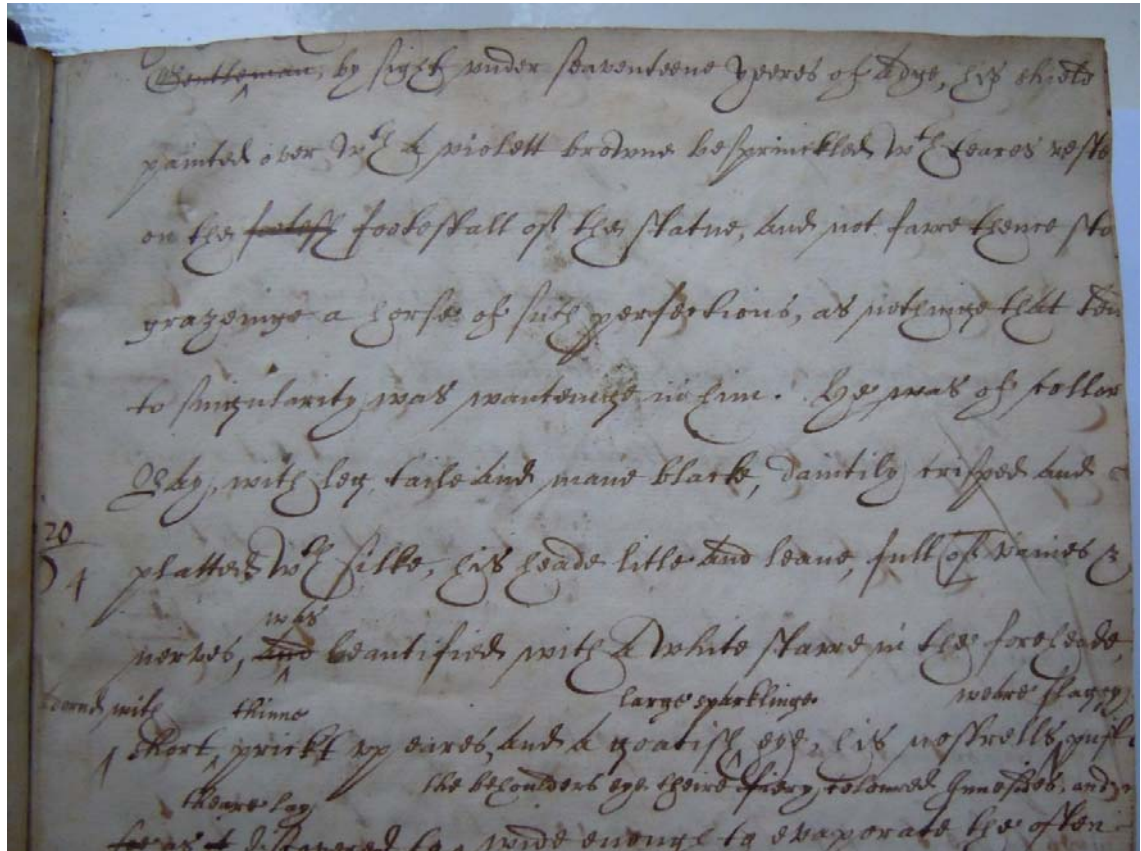 Gentleman, by sight vnder seaventeene Yeeres of Adge, his shield
painted over wth A violett browne besprinckled wth teares reste
on the footest footestall of the statue, And not farre thence sto
grazeinge a horse of such perfections, as nothinge that
to singularity was wanteinge in him. He was of collor
Bay, with leg, taile And mane blacke, daintily crisped And
20
4
platted wth silke, his heade litle And leane, full of vaines &
was
nerves, And beautified with A white starre in the foreheade,
adornd with thinne large sparklinge weare flaggy
short, prickt vp eares, And A goatish eye, his nostrells
theare lay the behoulders eye theire fiery coloured Innesides, and
discovered to wide enough to evaporate the often